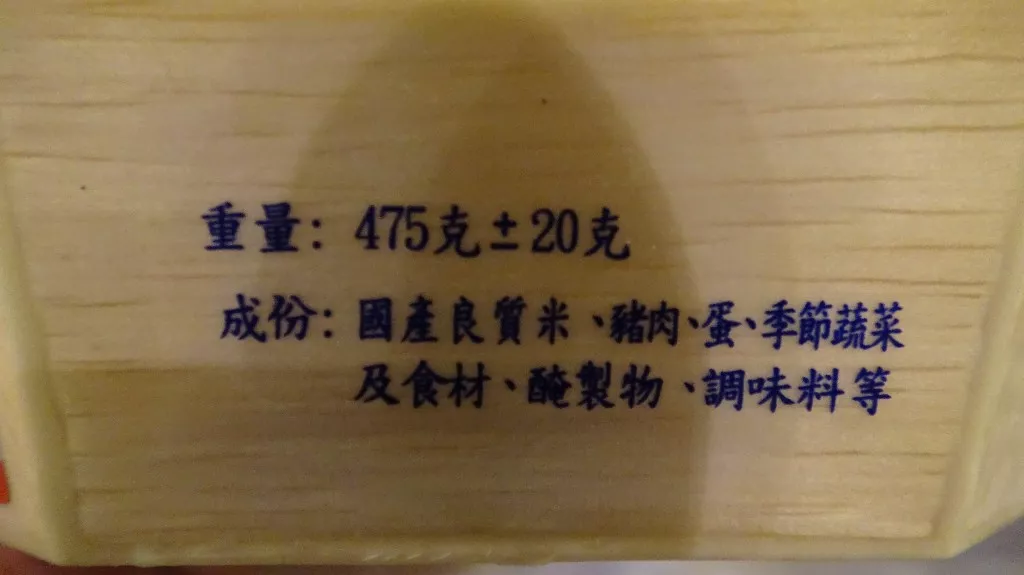 重量：475克±20克
成份：國產良質米、豬肉、蛋、季節蔬菜
及食材、醃製物、調味料等